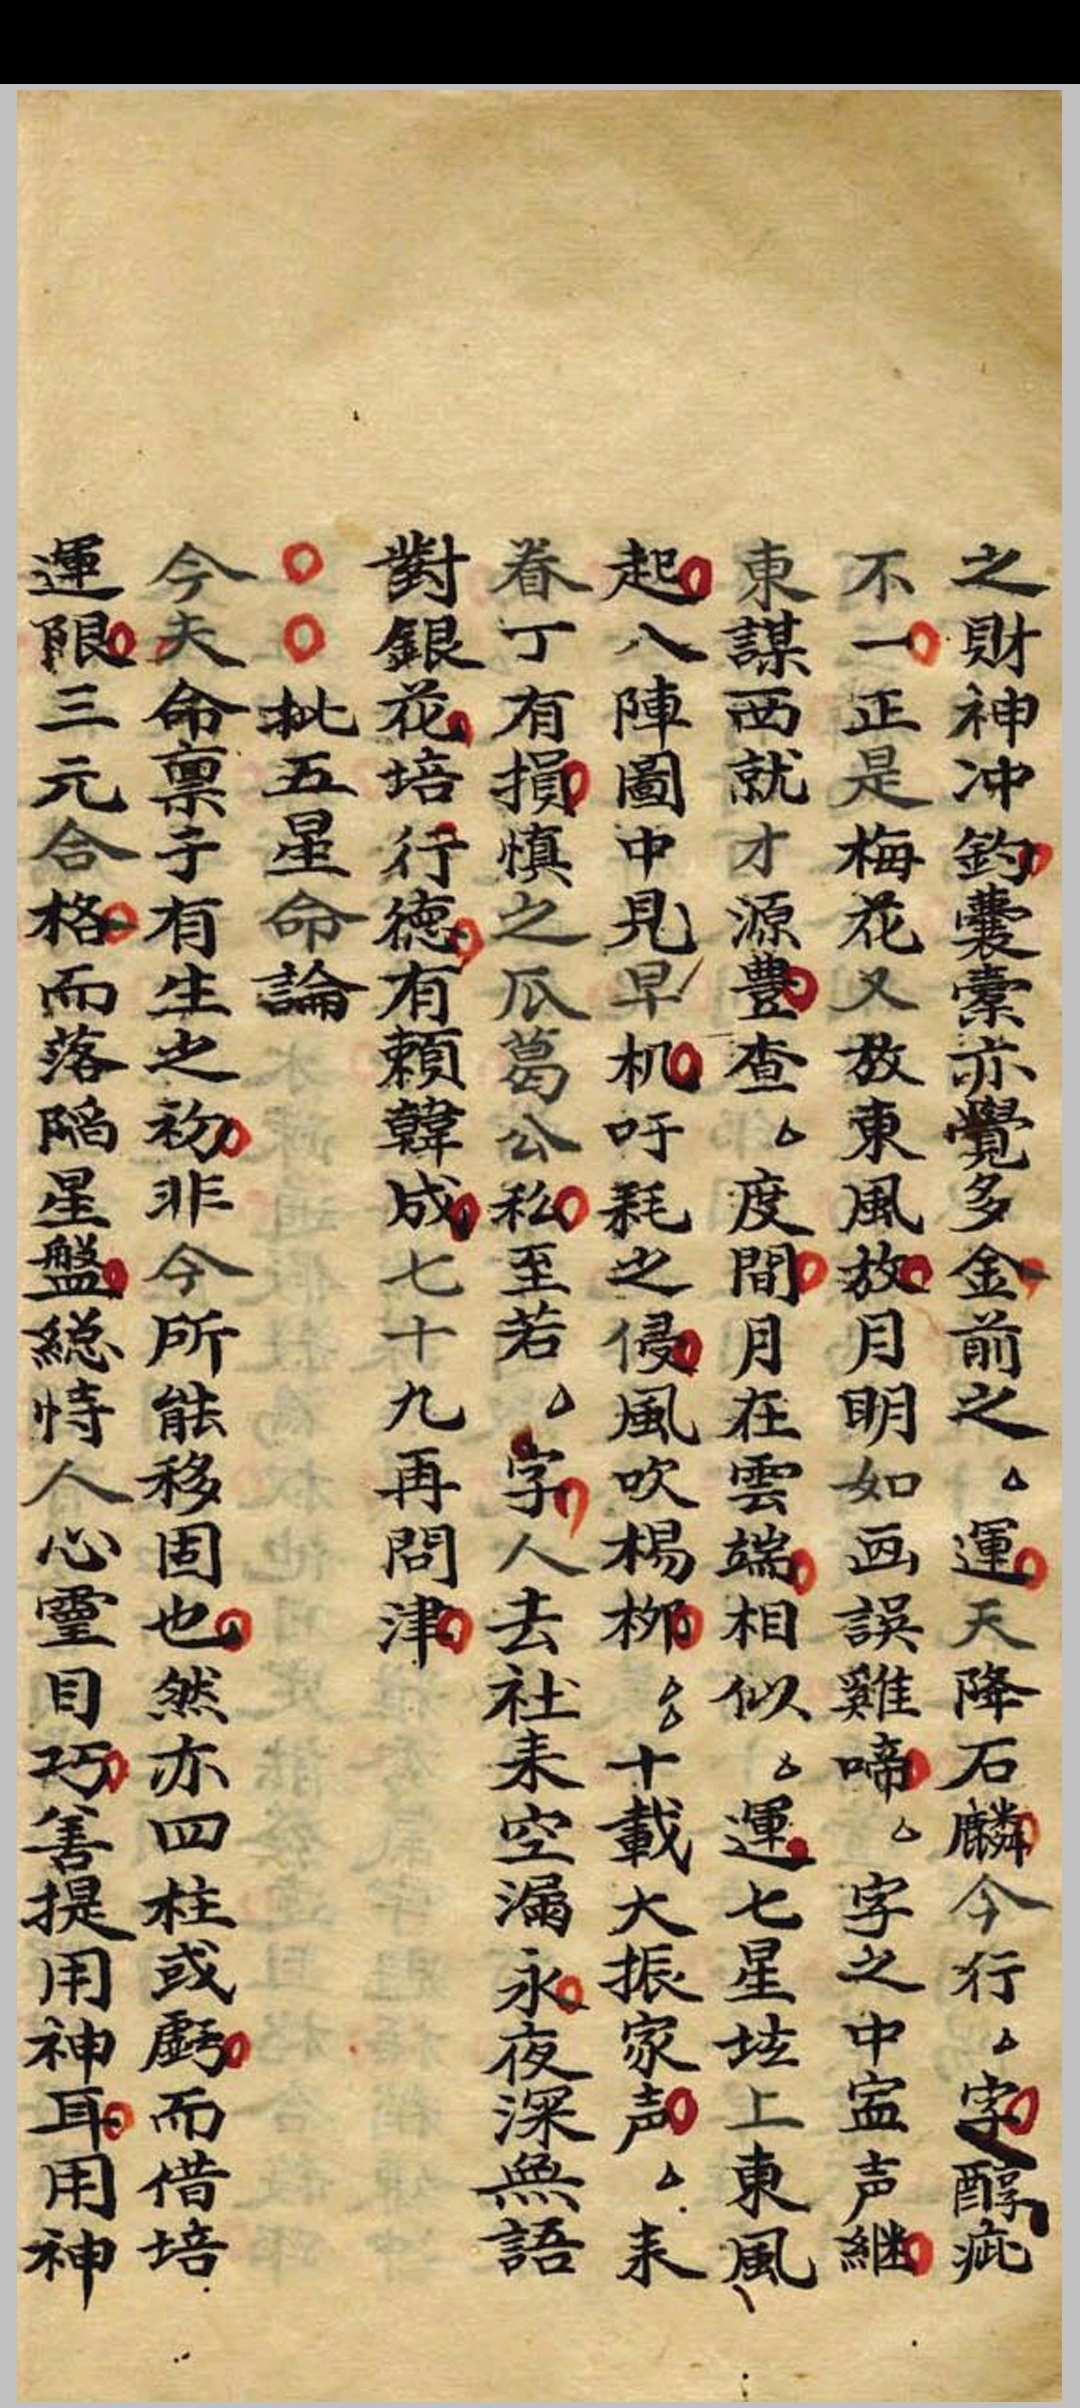 之財神冲釣囊橐亦覺多金前之△運天降石麟今行△字醇疵
不一正是梅花又放東風放月明如画誤雞啼△字之中宝声継
東謀西就才源豊查△度間月在雲端相似△運七星坛上東風
起八陣圖中見早机吁耗之侵風吹楊柳△△十載大振家声△耒
眷丁有損慎之瓜葛公私至若△字人去社耒空漏永夜深無語
對銀花培行德有賴韓成七十九再問津
批五星命論
今夫命禀于有生之初非今所能移固也然亦四柱或虧而借培
運限三元合格而落陷星盤総恃人心靈目巧善提用神耳用神